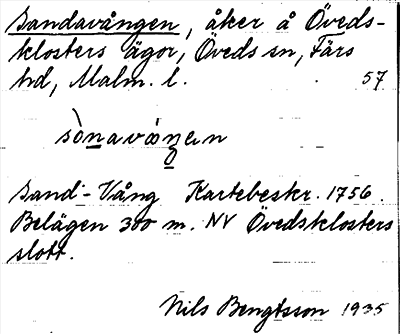 Sandavången, åker å Öveds-
klosters ägor, Öveds sn, Färs
hd, Malm. l. 57
sànavàŋen
Sand-Vång Kartebeskr. 1756.
Belägen 300 m. NV Övedsklosters
slott.
Nils Bengtsson 1935